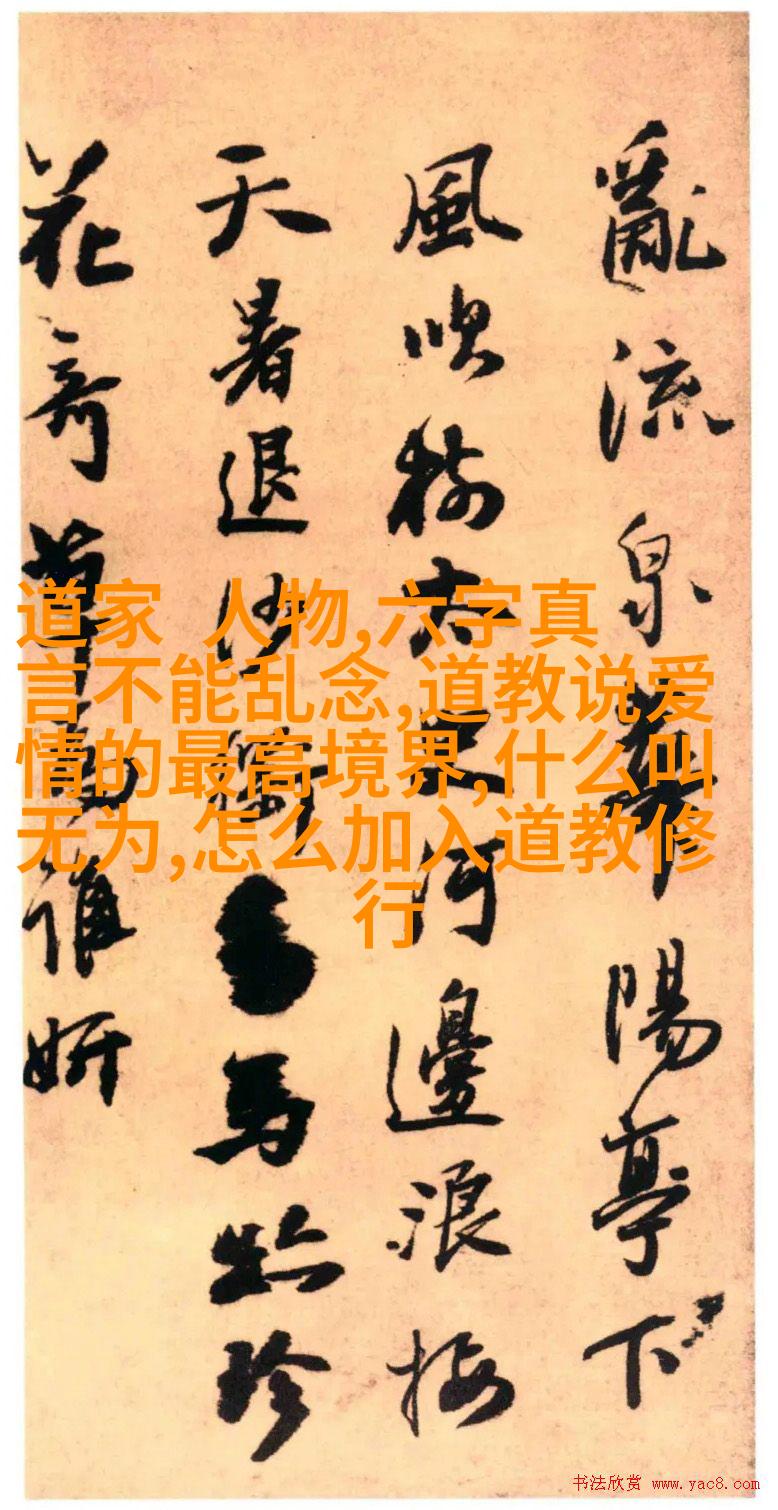 亂流泉華陽亭下
風吹樹木老河邊浪接
天暑退沙
馬點珍
花奇草為誰妍
道家 人物,六字真
言不能乱念,道教说爱
情的最高境界,什么叫
无为,怎么加入道教修
行
书法欣赏 www.yac8.com